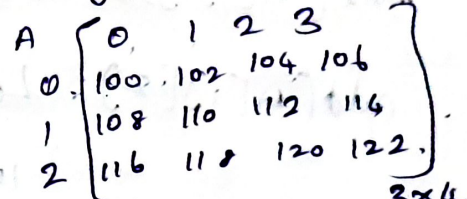 A 0 1 2 3
0 100 102 104 106
1 108 110 112 114
2 116 118 120 122
3×4